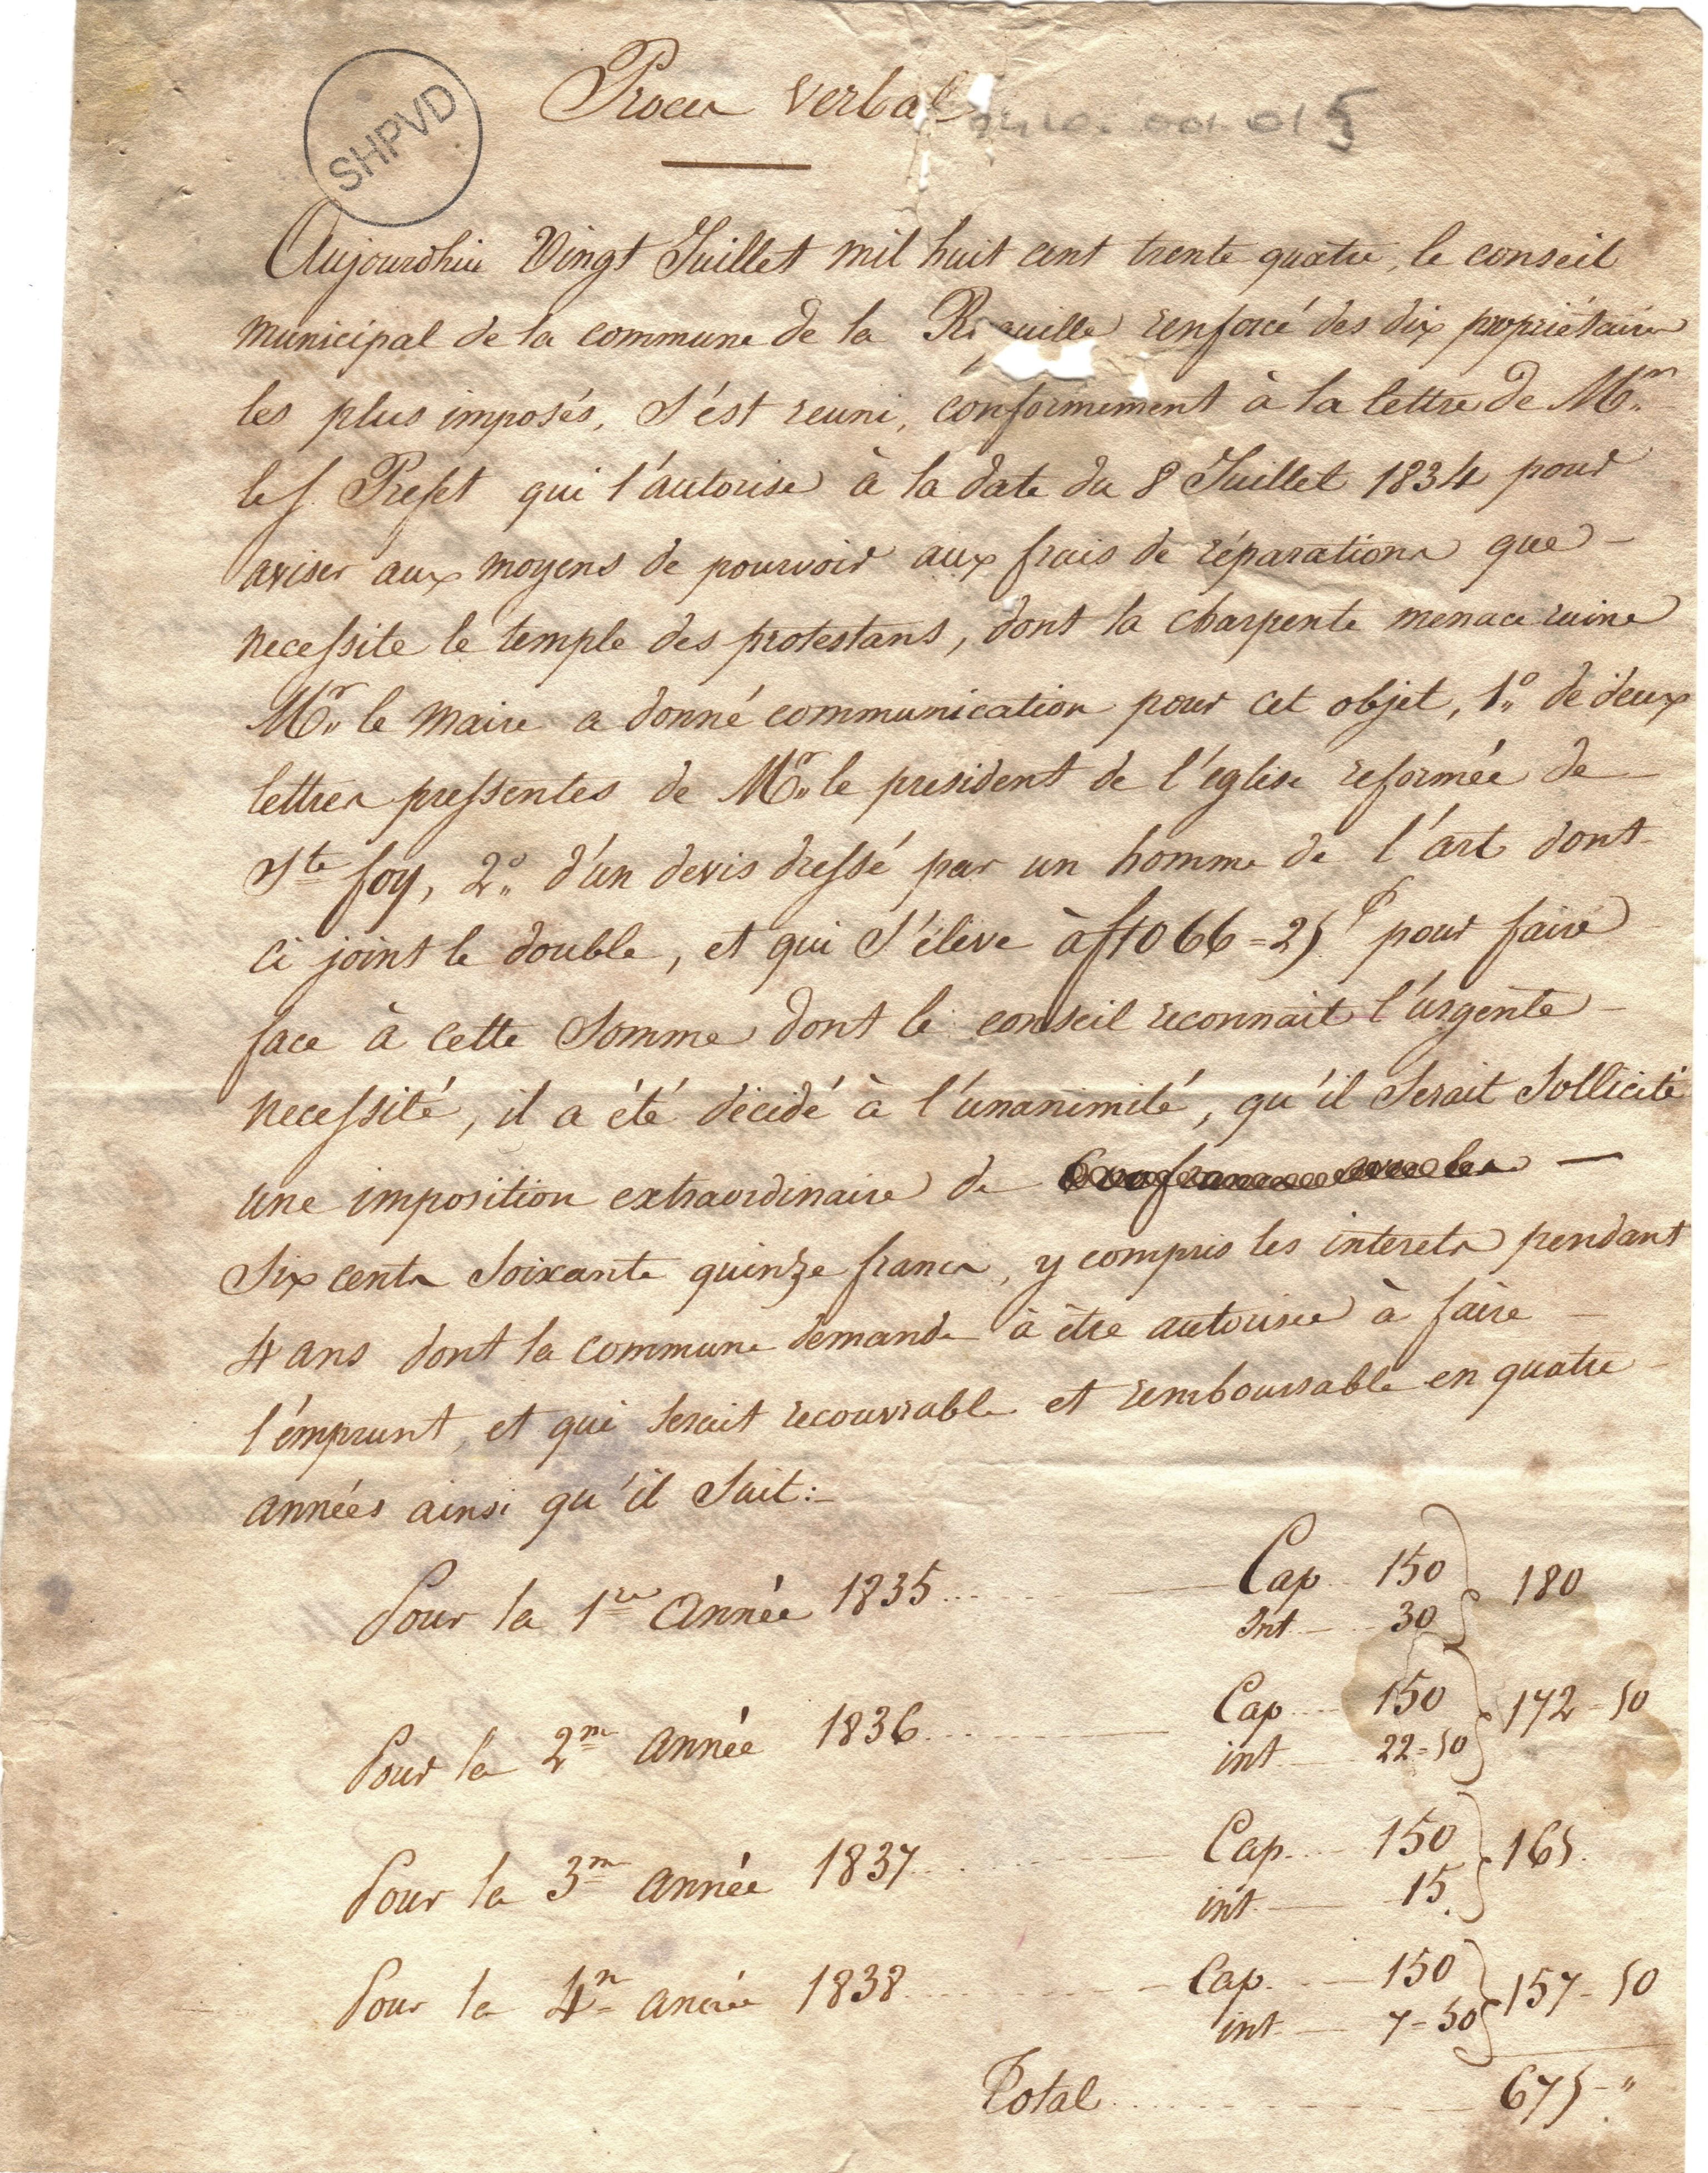 SHPVD
Proces verbal
001.015
Aujourdhui Vingt Juillet mil huit cent trente quatre, le conseil
municipal de la commune de la renforcé des dix propriétaires
les plus imposés, s'est reuni, conformement à la lettre de Mr.
le s. Prefet qui l'autorise à la date du 8 Juillet 1834 pour
aviser aux moyens de pourvoir aux frais de réparations que -
necessite le temple des protestans, dont la charpente menace ruine
Mr. le Maire a donné communication pour cet objet, 1.° de deux
lettres pressentes de Mr. le president de l'église reformée de -
Ste foy, 2.° d'un devis dressé par un homme de l'art dont -
ci joint le double, et qui s'élève à f 1066 = 25 pour faire
face à cette somme dont le conseil reconnait l'urgente -
necessité, il a été décidé à l'unanimité, qu'il serait sollicité
une imposition extraordinaire de —
six cents soixante quinze francs, y compris les interets pendant
4 ans dont la commune demande à être autorisée à faire -
l'emprunt, et qui serait recouvrable et remboursable en quatre -
années ainsi qu'il suit:-
Pour la 1re année 1835 ... Cap 150 180
Int 30
Pour la 2me année 1836 ... Cap 150 172-50
int 22=50
Pour la 3me année 1837 ... Cap 150 165.
int 15.
Pour la 4me année 1838 ... Cap 150 157-50
int 7=50
Total ... 675-"